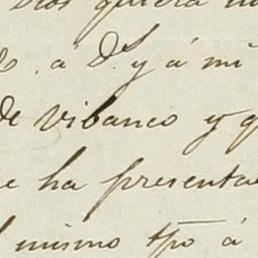 Dios quiera
. a D. y á mi
de vibanco y q
e ha presenta
l mismo tpo á